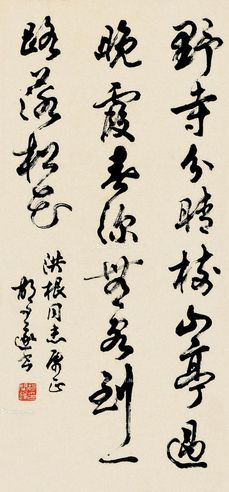 野寺分晴树山亭過
晚霞春深無客到一
路落松花
洪根同志属正
胡问遂书